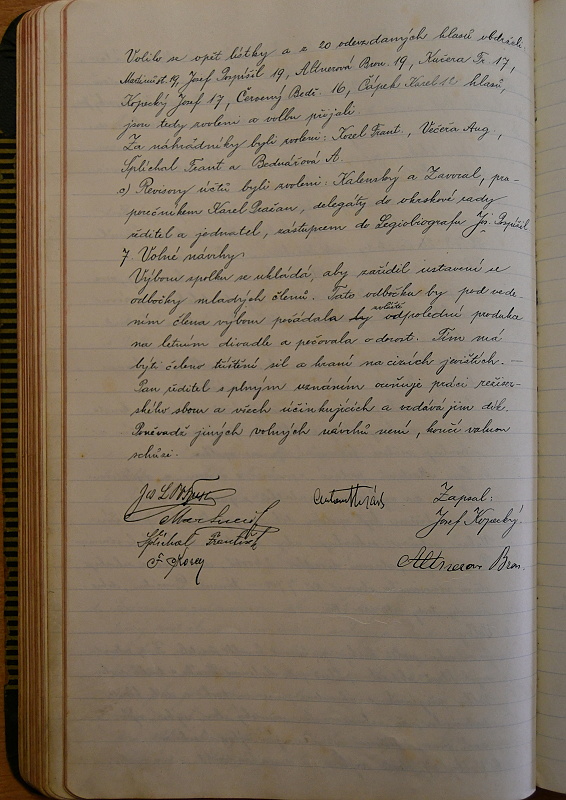 Volilo se opět lístky a z 20 odevzdaných hlasů obdrželi
19, Josef Pospíšil 19, Altnerová Bron. 19, Kučera Fr. 17,
Kopecký Josef 17, Červený Bedř. 16, Čápek Karel 12 hlasů,
jsou tedy zvoleni a volbu přijali.
Za náhradníky byli zvoleni: Kozel Frant., Večeřa Aug.,
Šplíchal Frant a Bednářová A.
c) Revisory účtů byli zvoleni: Kalenský a Zavoral, pra-
porečníkem Karel Pračan, delegáty do okrskové rady
ředitel a jednatel, zástupcem do Legiobiografu Jos. Pospíšil
7. Volné návrhy
Výboru spolku se ukládá, aby zařídil ustavení se
odbočky mladých členů. Tato odbočka by pod vede-
ním člena výboru pořádala zvláště odpolední produkce
na letním divadle a pečovala o dorost. Tím má
býti čeleno tříštění sil a hraní na cizích jevištích. —
Pan ředitel s plným uznáním oceňuje práci režisér-
ského sboru a všech účinkujících a vzdává jim dík.
Poněvadž jiných volných návrhů není, končí valnou
schůzi.
Zapsal:
Josef Kopecký.
Šplíchal František
Altnerová Bron.